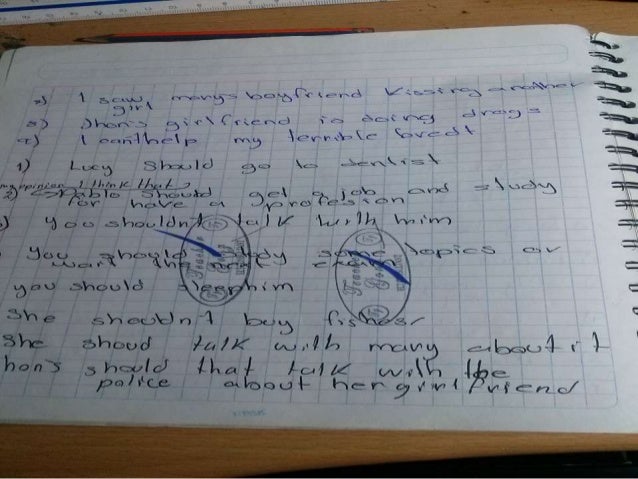 I saw marys boyfriend kissing another
girl
Jhon's girlfriend is doing drogs
I can't help my terrible
1) Lucy should go to dentist
my opinion I think that
2) Pablo should get a job and study
for have a profesion
you shouldn't talk with him
you should study some topics or
want the next
you should him
She shouldn't buy fishes
She shoud talk with mary about it
hon's should that talk with the
police about her girlfriend
Teacher
Teacher